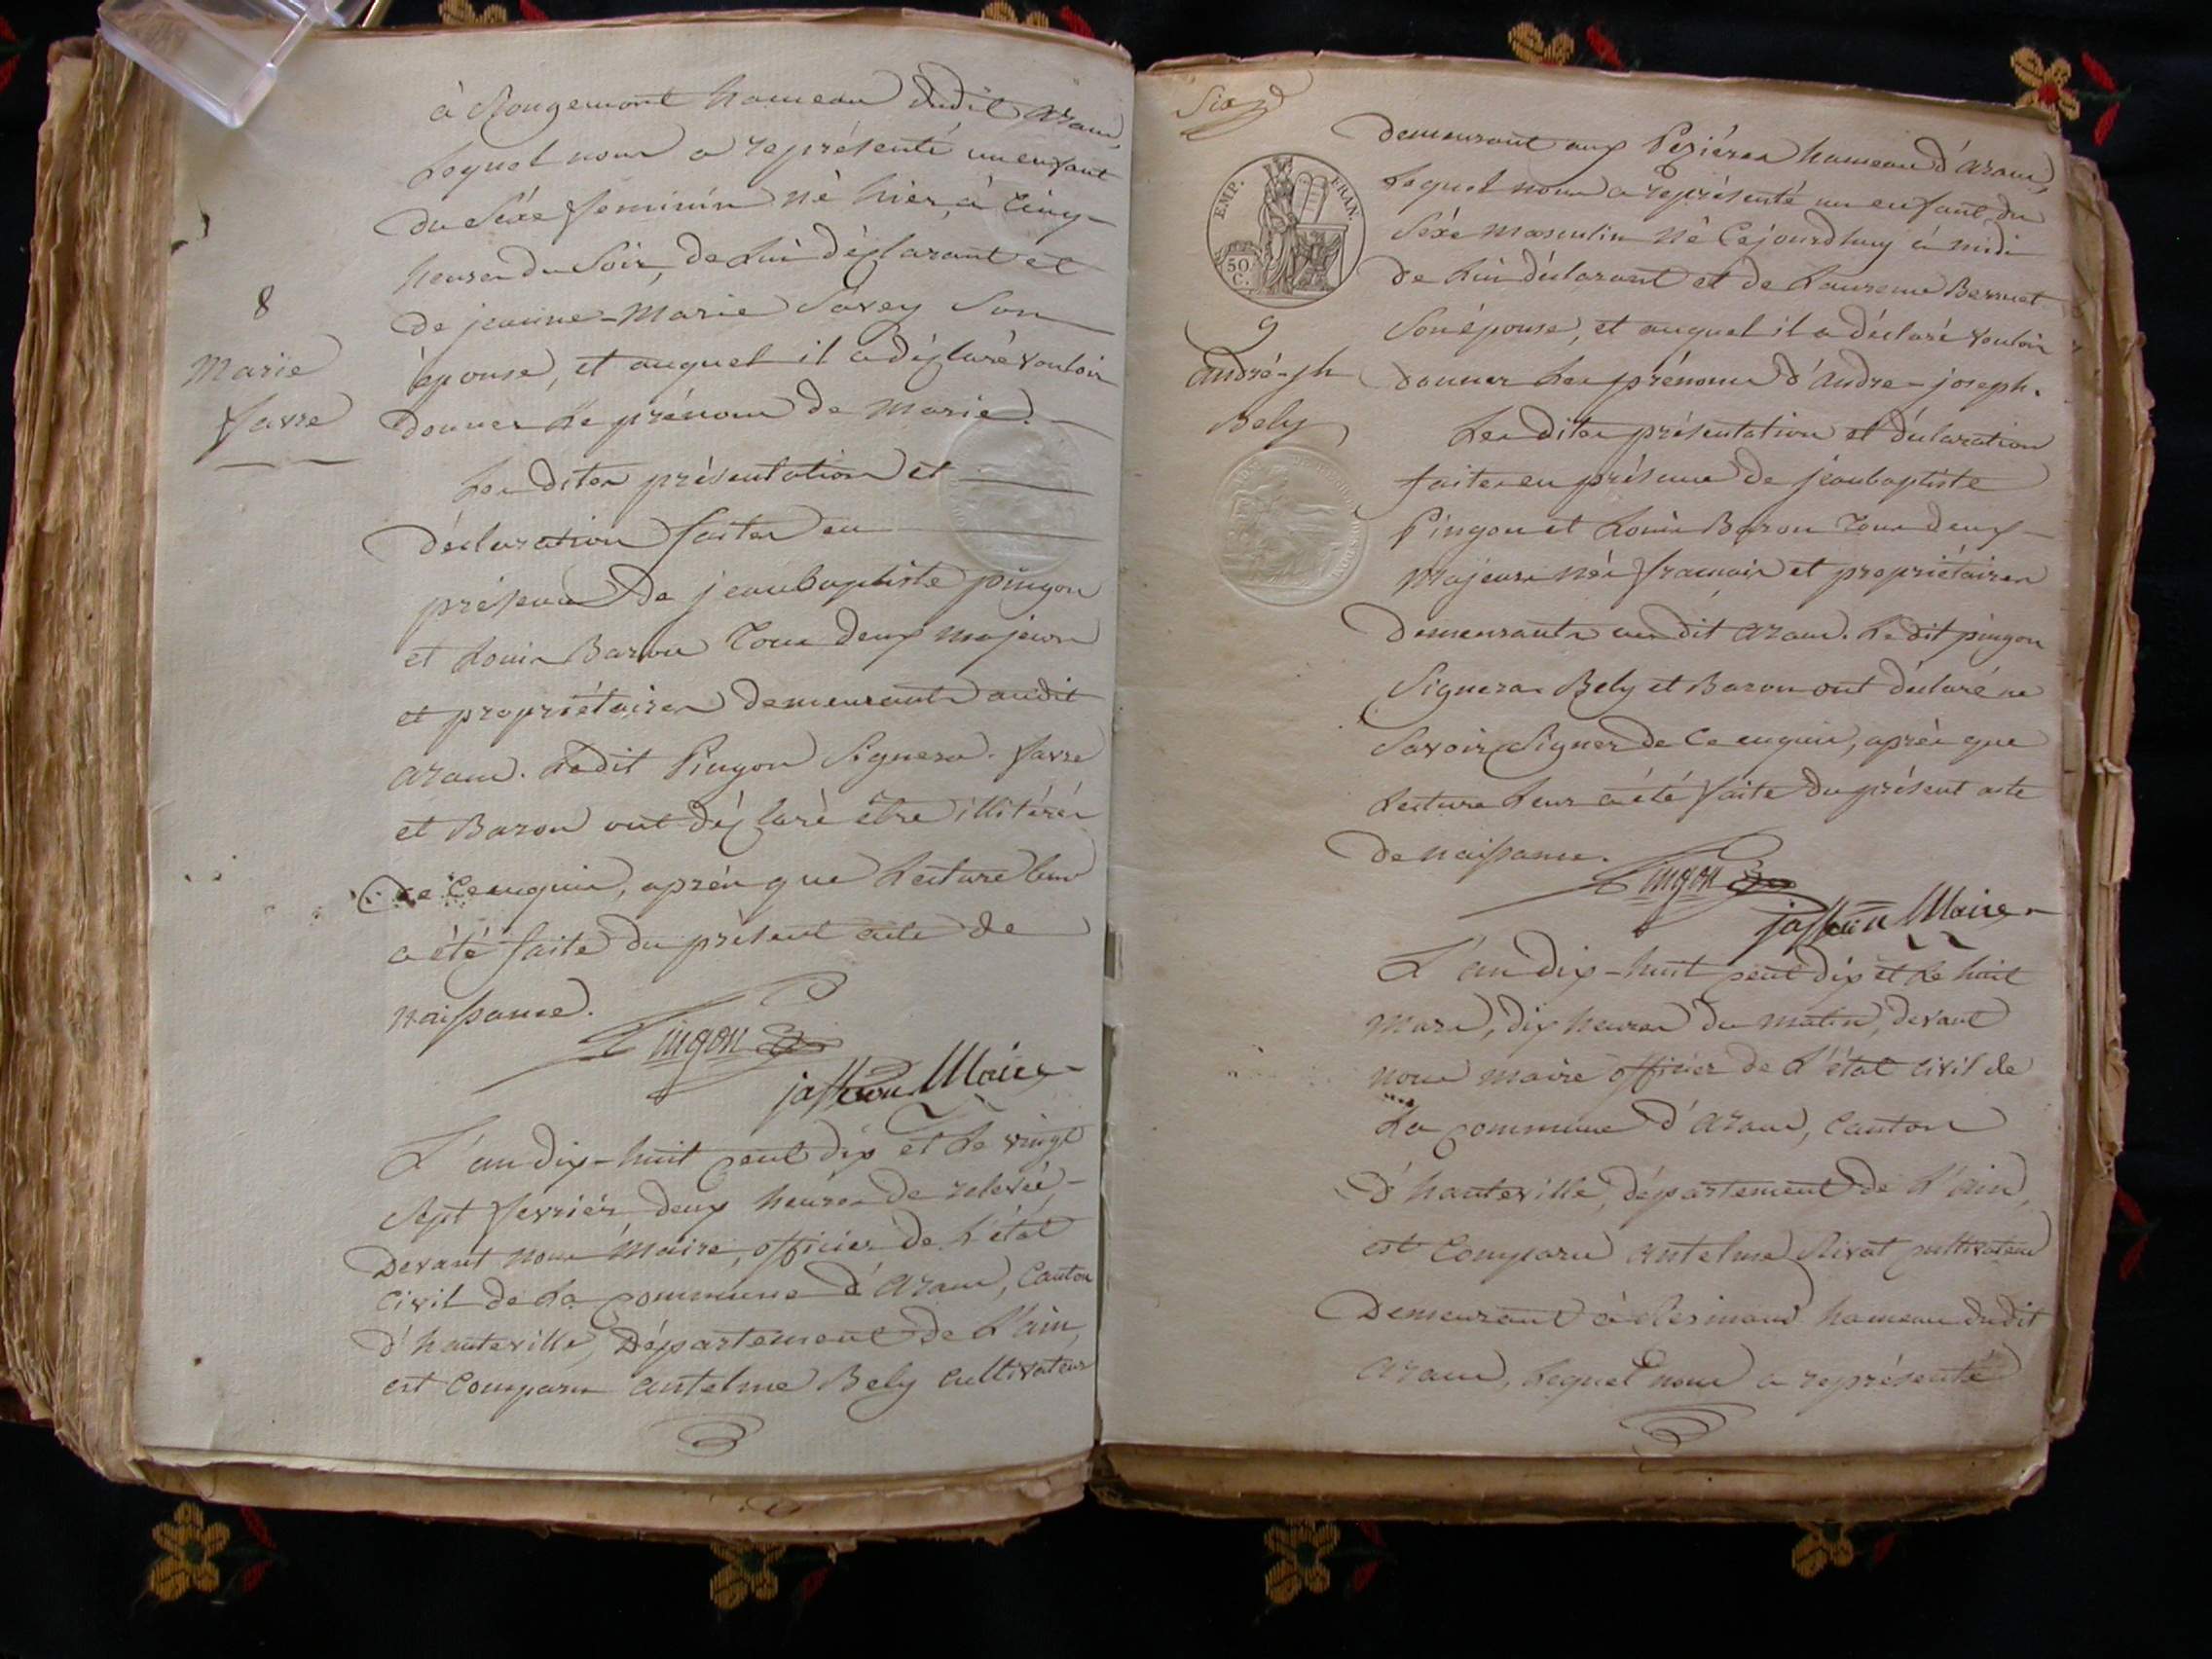 à Rougemont hameau dudit aranc,
Lequel nous a représenté un enfant
du Séxe feminin né hier, à Cinq
heures du Soir, de Lui déclarant et
de jeanne-Marie Savey Son
épouse, et auquel il a déclaré vouloir
donner Le prénom de Marie.
8
Marie
favre
Les dites présentation et
déclaration faites en
présence de jeanbaptiste pingon
et Louis Baron Tous deux majeurs
et propriétaires demeurants audit
aranc. Ledit Pingon Signera. favre
et Baron ont déclaré être illitérés
de Ce enquis, après que Lecture leur
a été faite du présent acte de
naissance.
Pingon
Maire
L'an dix-huit cent dix et Le vingt
Sept fevrier deux heures de relevée,
Devant nous Maire, officier de L'état
Civil de La Commune d'aranc, Canton
d'hauteville, Département de L'ain,
est Comparu antelme Bely Cultivateur
Six
EMP. FRAN.
50 C.
9
andré-jh
Bely
demeurant aux Pézières hameau d'aranc,
Lequel nous a représenté un enfant du
Séxe masculin né Cejourdhuy à midi
de Lui déclarant et de Laurence Bernet
Son épouse, et auquel il a déclaré vouloir
donner Les prénoms d'andre-joseph.
Les dites présentation et déclaration
faites en présence de jeanbaptiste
Pingon et Louis Baron Tous deux
Majeurs nés francais et propriétaires
Demeurants audit aranc. Ledit pingon
Signera. Bely et Baron ont déclaré ne
Savoir Signer de Ce enquis, après que
Lecture Leur a été faite du présent acte
de naissance.
Pingon
Maire
L'an dix-huit cent dix et Le huit
Mars, dix heures du matin, devant
nous maire officier de L'état civil de
La commune d'aranc, Canton
d'hauteville, département de L'ain,
est Comparu antelme Rivat cultivateur
Demeurant à Resinand hameau dudit
aranc, Lequel nous a représenté